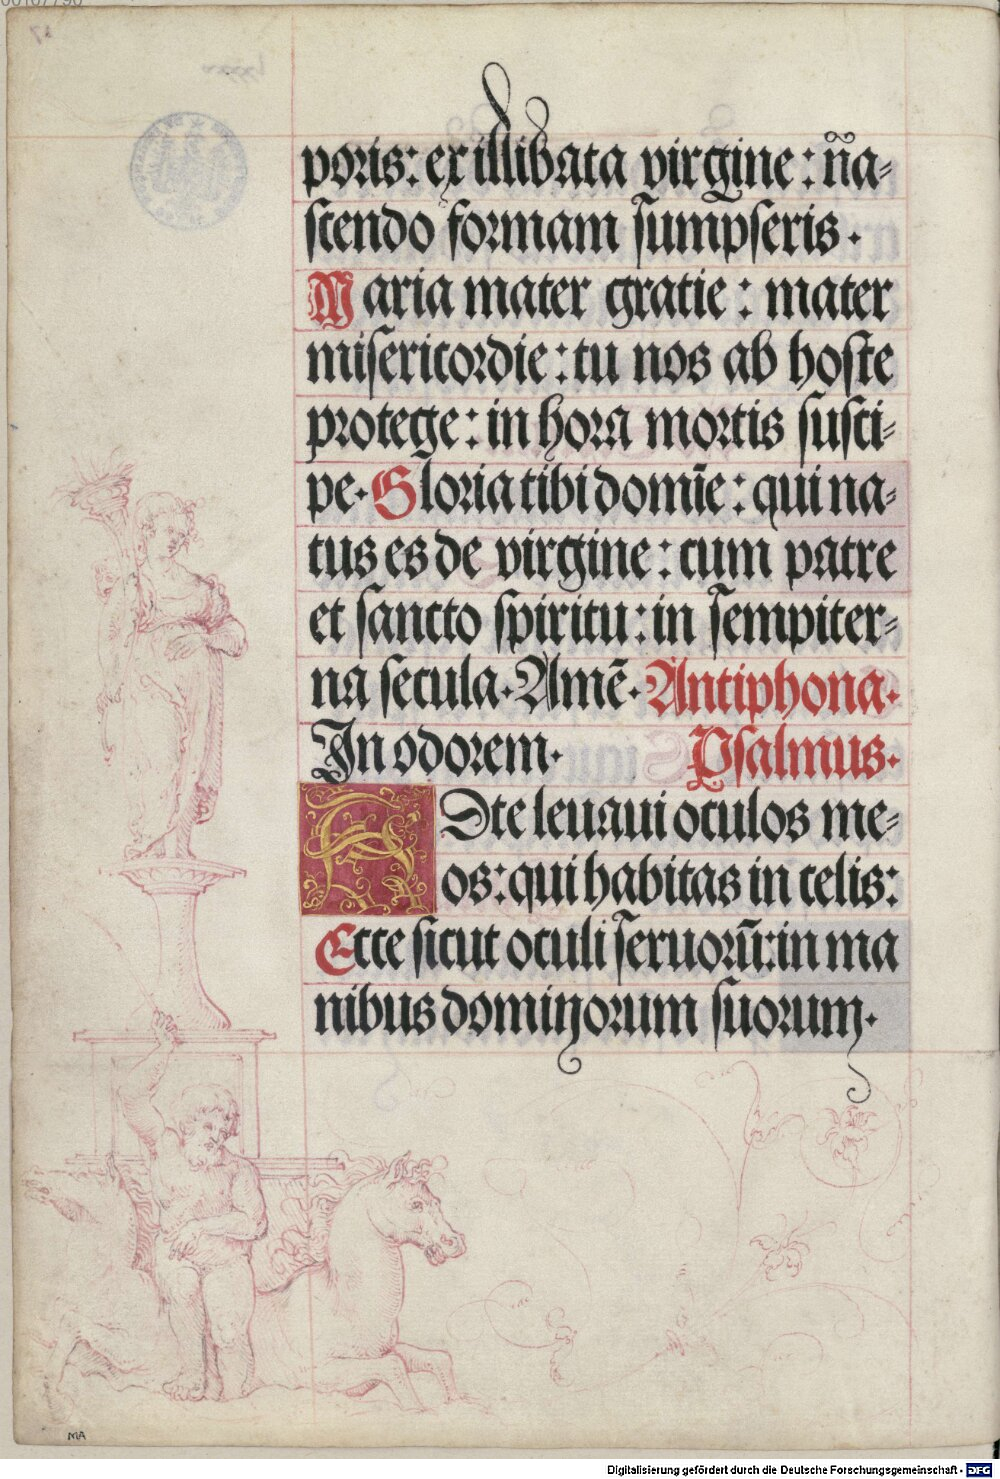 poris: ex illibata virgine: n̄a⸗
scendo formam sumpseris.
Maria mater gratie: mater
misericordie: tu nos ab hoste
protege: in hora mortis susci⸗
pe. Gloria tibi domīe: qui na⸗
tus es de virgine: cum patre
et sancto spiritu: in sempiter⸗
na secula. Amē. Antiphona.
In odorem. Psalmus.
ADte leuaui oculos me⸗
os: qui habitas in celis:
Ecce sicut oculi seruorū: in ma
nibus dominorum suorum.
MA
Digitalisierung gefördert durch die Deutsche Forschungsgemeinschaft - DFG